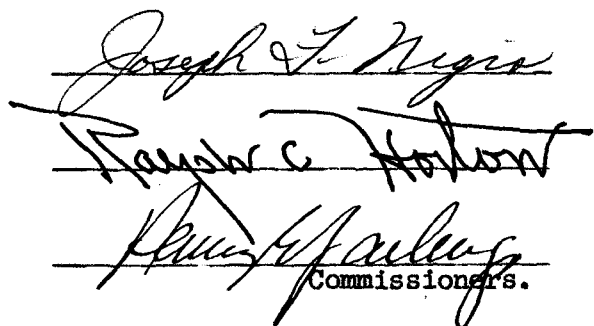 Joseph F. Nigro
Ralph C Horton
Commissioners.